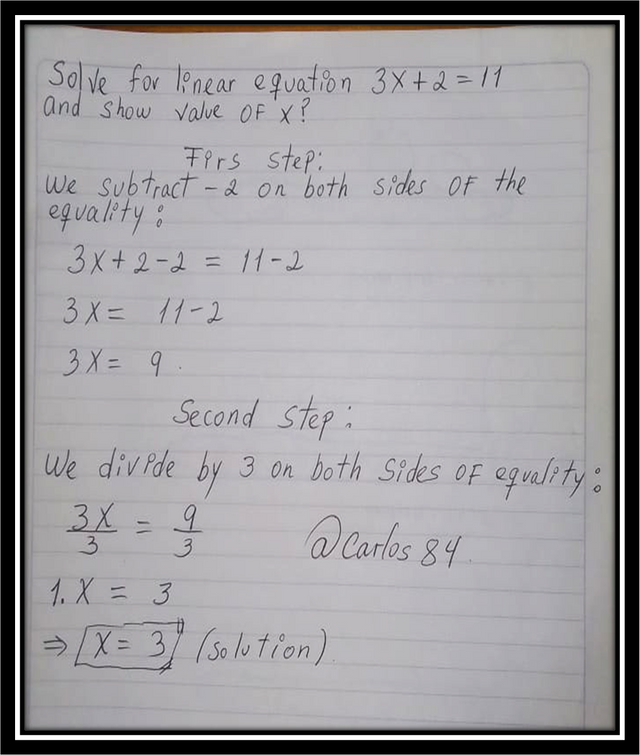 Solve for linear equation 3x+2=11
and show value OF x?
Firs step:
We subtract -2 on both sides OF the
equality:
3x+2-2 = 11-2
3x= 11-2
3x= 9.
Second step:
We divide by 3 on both sides OF equality:
3x/3 = 9/3
@Carlos84.
1.x = 3
⇒ x= 3 (solution).